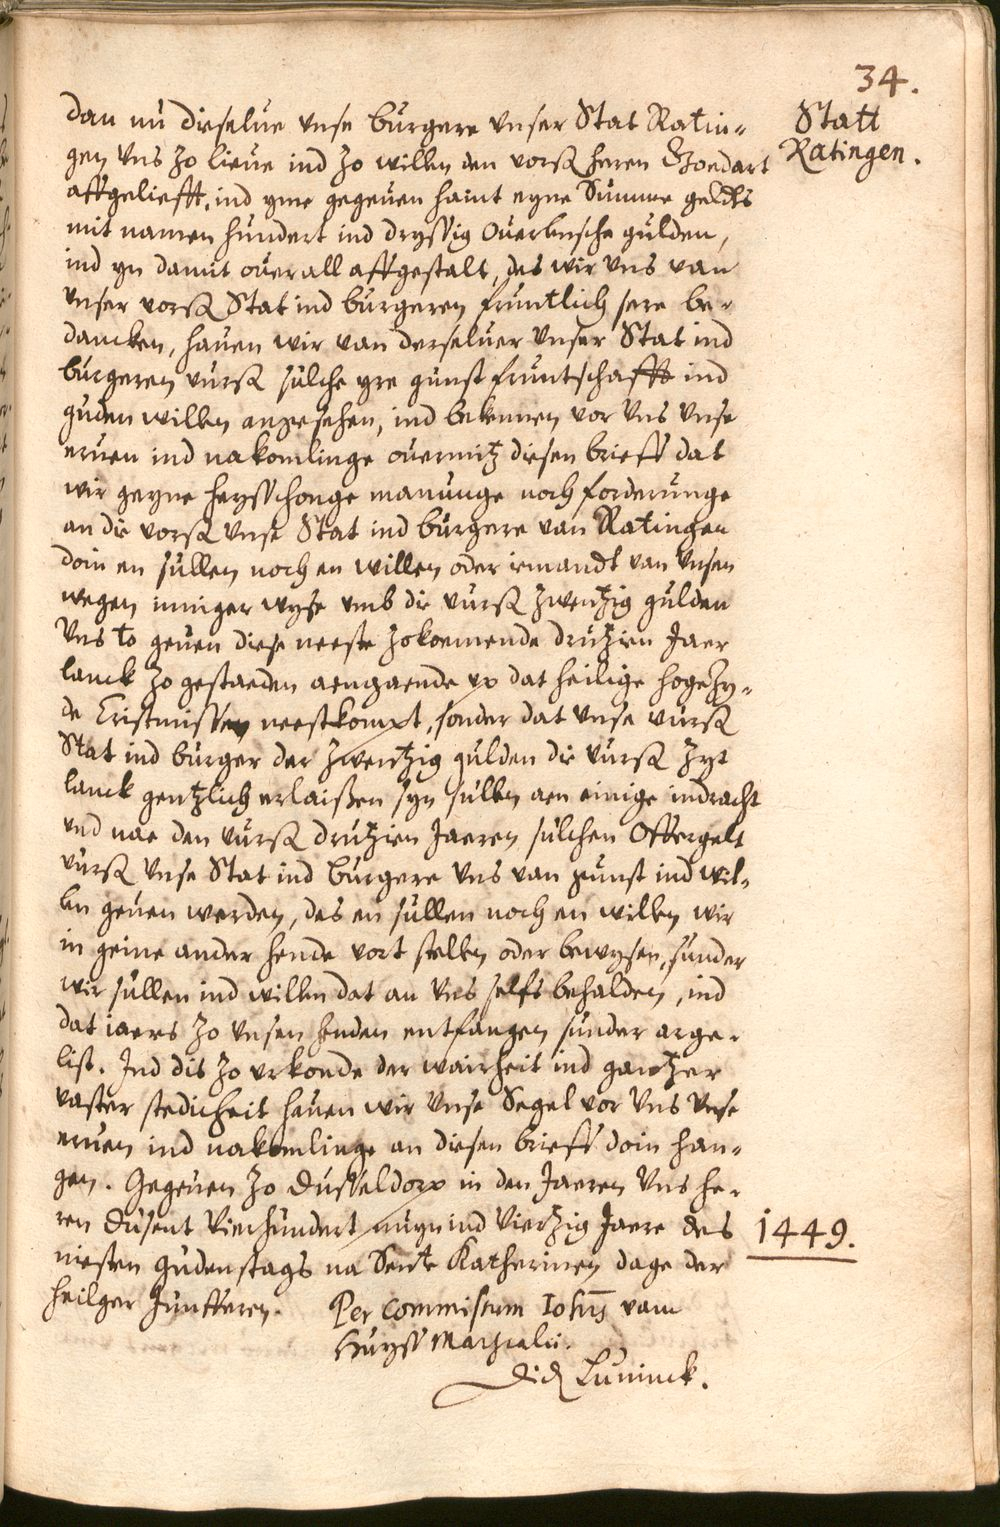 34.
Statt
Ratingen.
dan nu dieselue vnse burgere vnser Stat Ratin-
gen vns zo lieue ind zo willen den vorß heren Goedart
affgeliefft, ind yme gegeuen haint eyne Summe geldts
mit namen hundert ind dryssig Ouerlensche gulden,
ind yn damit ouerall affgestalt, des wir vns van
vnser vorß Stat ind burgeren fruntlich sere be-
dancken, hauen wir van derseluer vnser Stat ind
burgeren vurß sulche yre gunst fruntschafft ind
guden willen angesehen, ind bekennen vor vns vnse
eruen ind nakomlinge ouermitz diesen brieff dat
wir geyne heysschonge manunge noch forderunge
an die vorß vnse Stat ind burgere van Ratingen
doin en sullen noch en willen oder iemandt van vnsen
wegen inniger wyse vmb die vurß zwentzig gulden
vns to geuen diese neeste zokoemende drutzien Jaer
lanck zo gestaeden aengaende vp dat heilige hogezy-
de Cristmissen neestkompt, sonder dat vnse vurß
Stat ind burger der zwentzig gulden die vurß zyt
lanck gentzlich erlaißen syn sullen aen einige indracht
vnd nae den vurß drutzien Jaeren sulchen Offergelt
vurß vnse Stat ind burgere vns van gunst ind wil-
len geuen werden, des en sullen noch en willen wir
in geine ander hende vort stellen oder bewysen, sunder
wir sullen ind willen dat an vns selfs behalden, ind
dat iaers zo vnsen henden entfangen sunder arge-
list. Ind dis zo vrkonde der wairheit ind gantzer
vaster stedicheit hauen wir vnse Segel vor vns vnse
eruen ind nakomlinge an diesen brieff doin han-
gen. Gegeuen zo Dusseldorp in den Jaeren vns he-
ren Dusent Vierhundert nuyn ind Viertzig Jaere des
1449.
niesten gudenstags na Sente Katherinen dage der
heilger Junfferen.
Per commissum Johis vam
Huyss Marscalci.
Did Luninck.